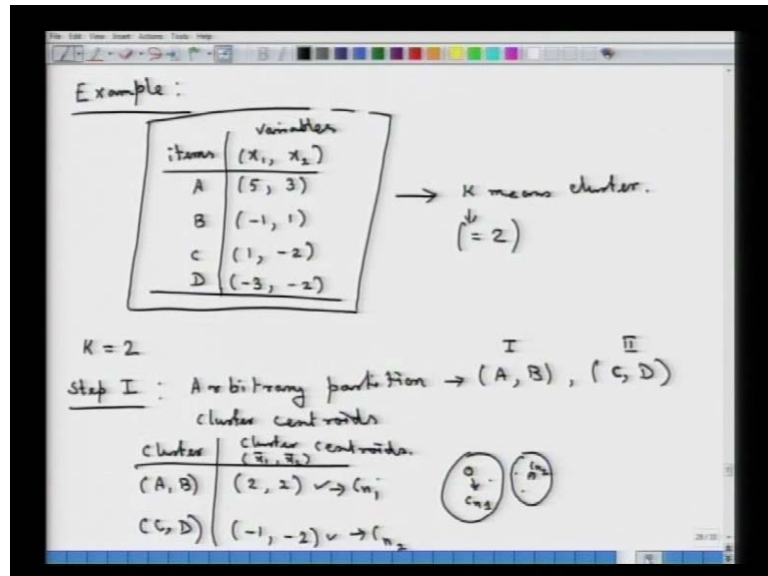 File Edit View Insert Actions Tools Help
Example :
variables
items (x₁, x₂)
A (5, 3)
B (-1, 1)
C (1, -2)
D (-3, -2)
→ K means cluster.
↓
(= 2)
K = 2
I II
Step I : Arbitrary partition → (A, B) , (C, D)
cluster centroids
cluster cluster centroids.
(x̄₁, x̄₂)
(A, B) (2, 2) ✓→ Cn₁
(C, D) (-1, -2) ✓ → Cn₂
Cn₁ Cn₂